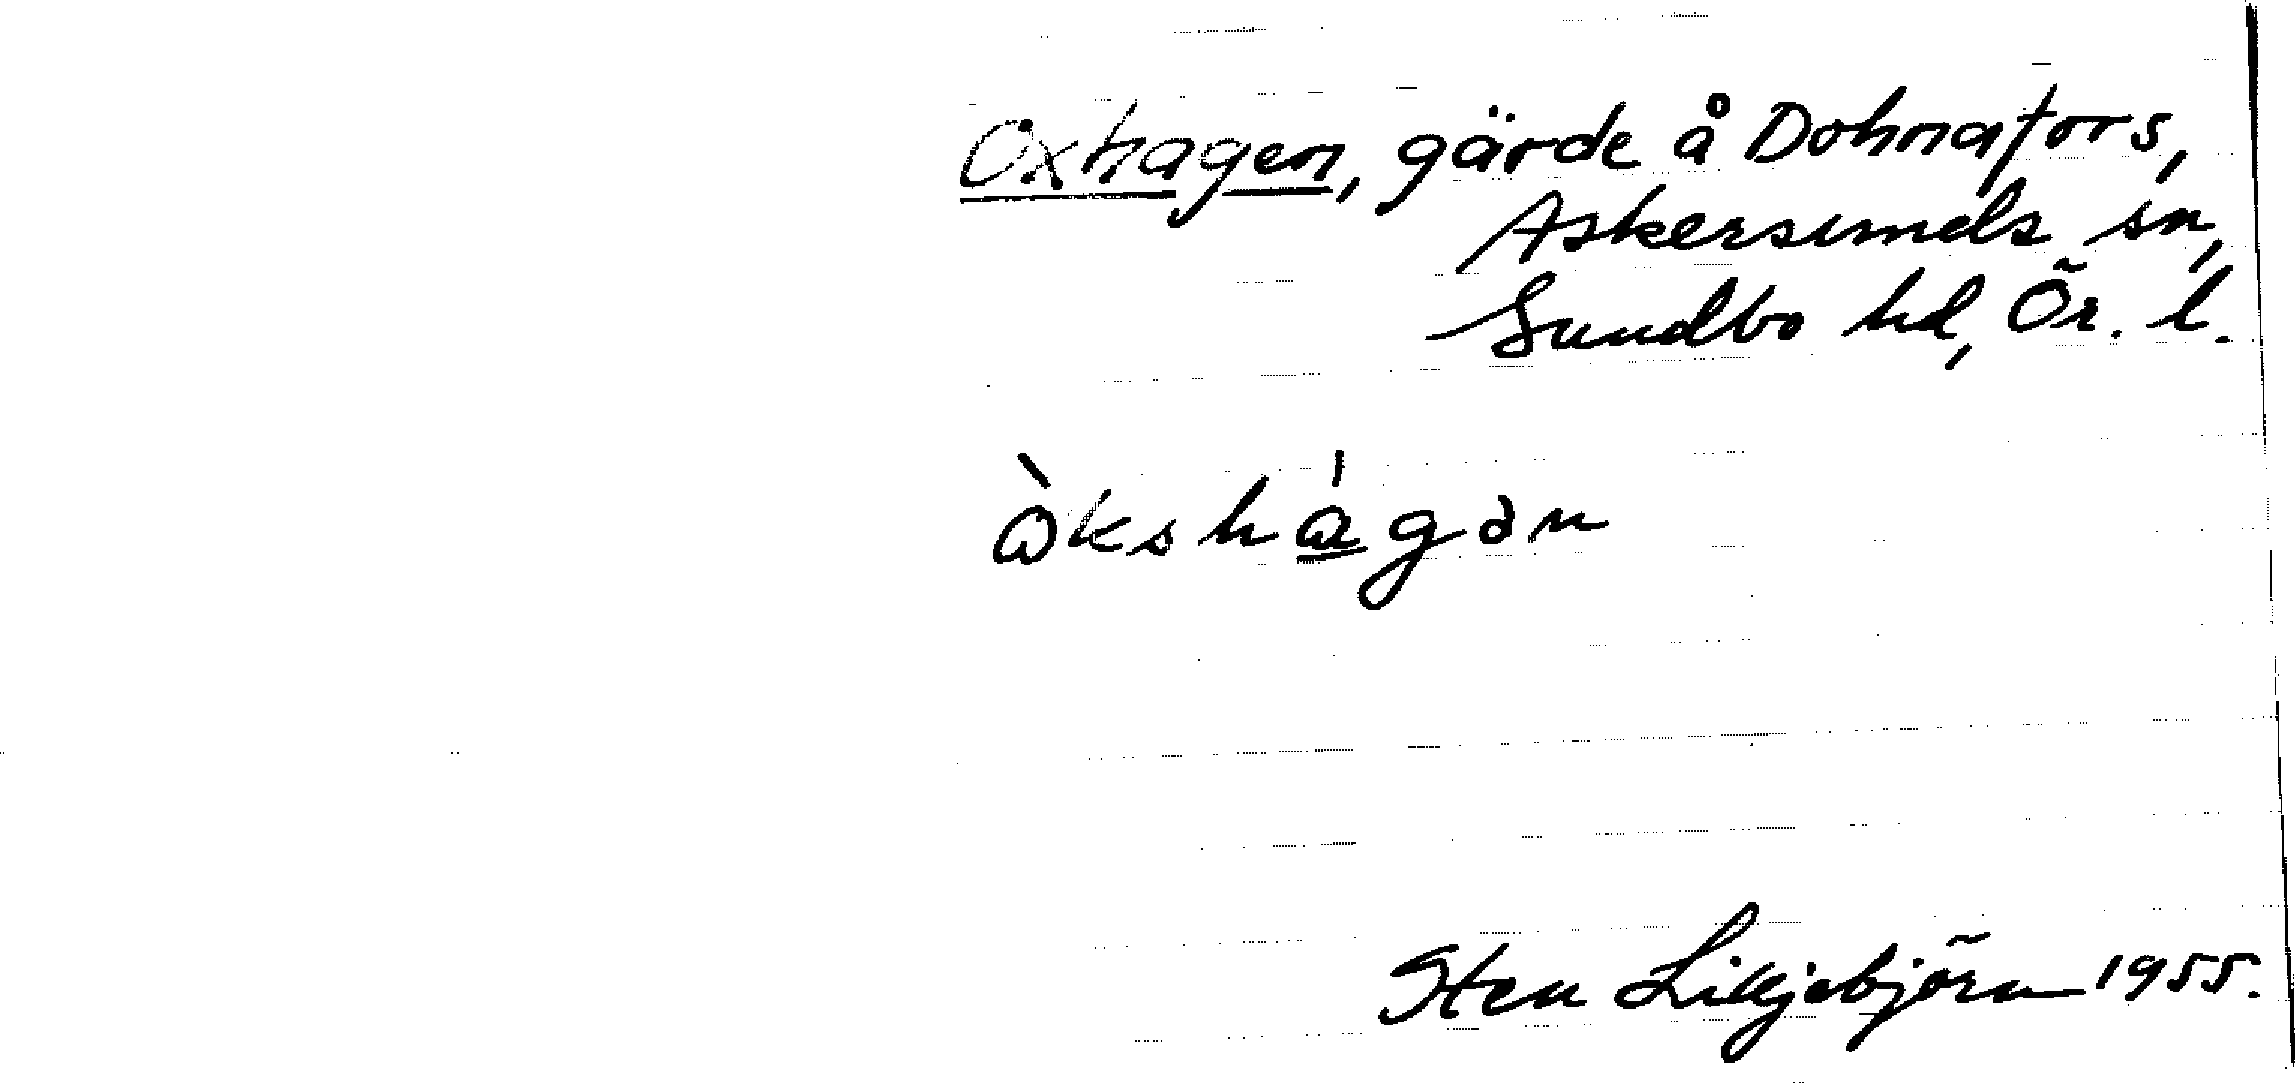 Oxhagen, gärde å Dohnafors,
Askersunds sn,
Sundbo hd, Ör. l.
òkshágən
Sten Liljebjörn 1955.